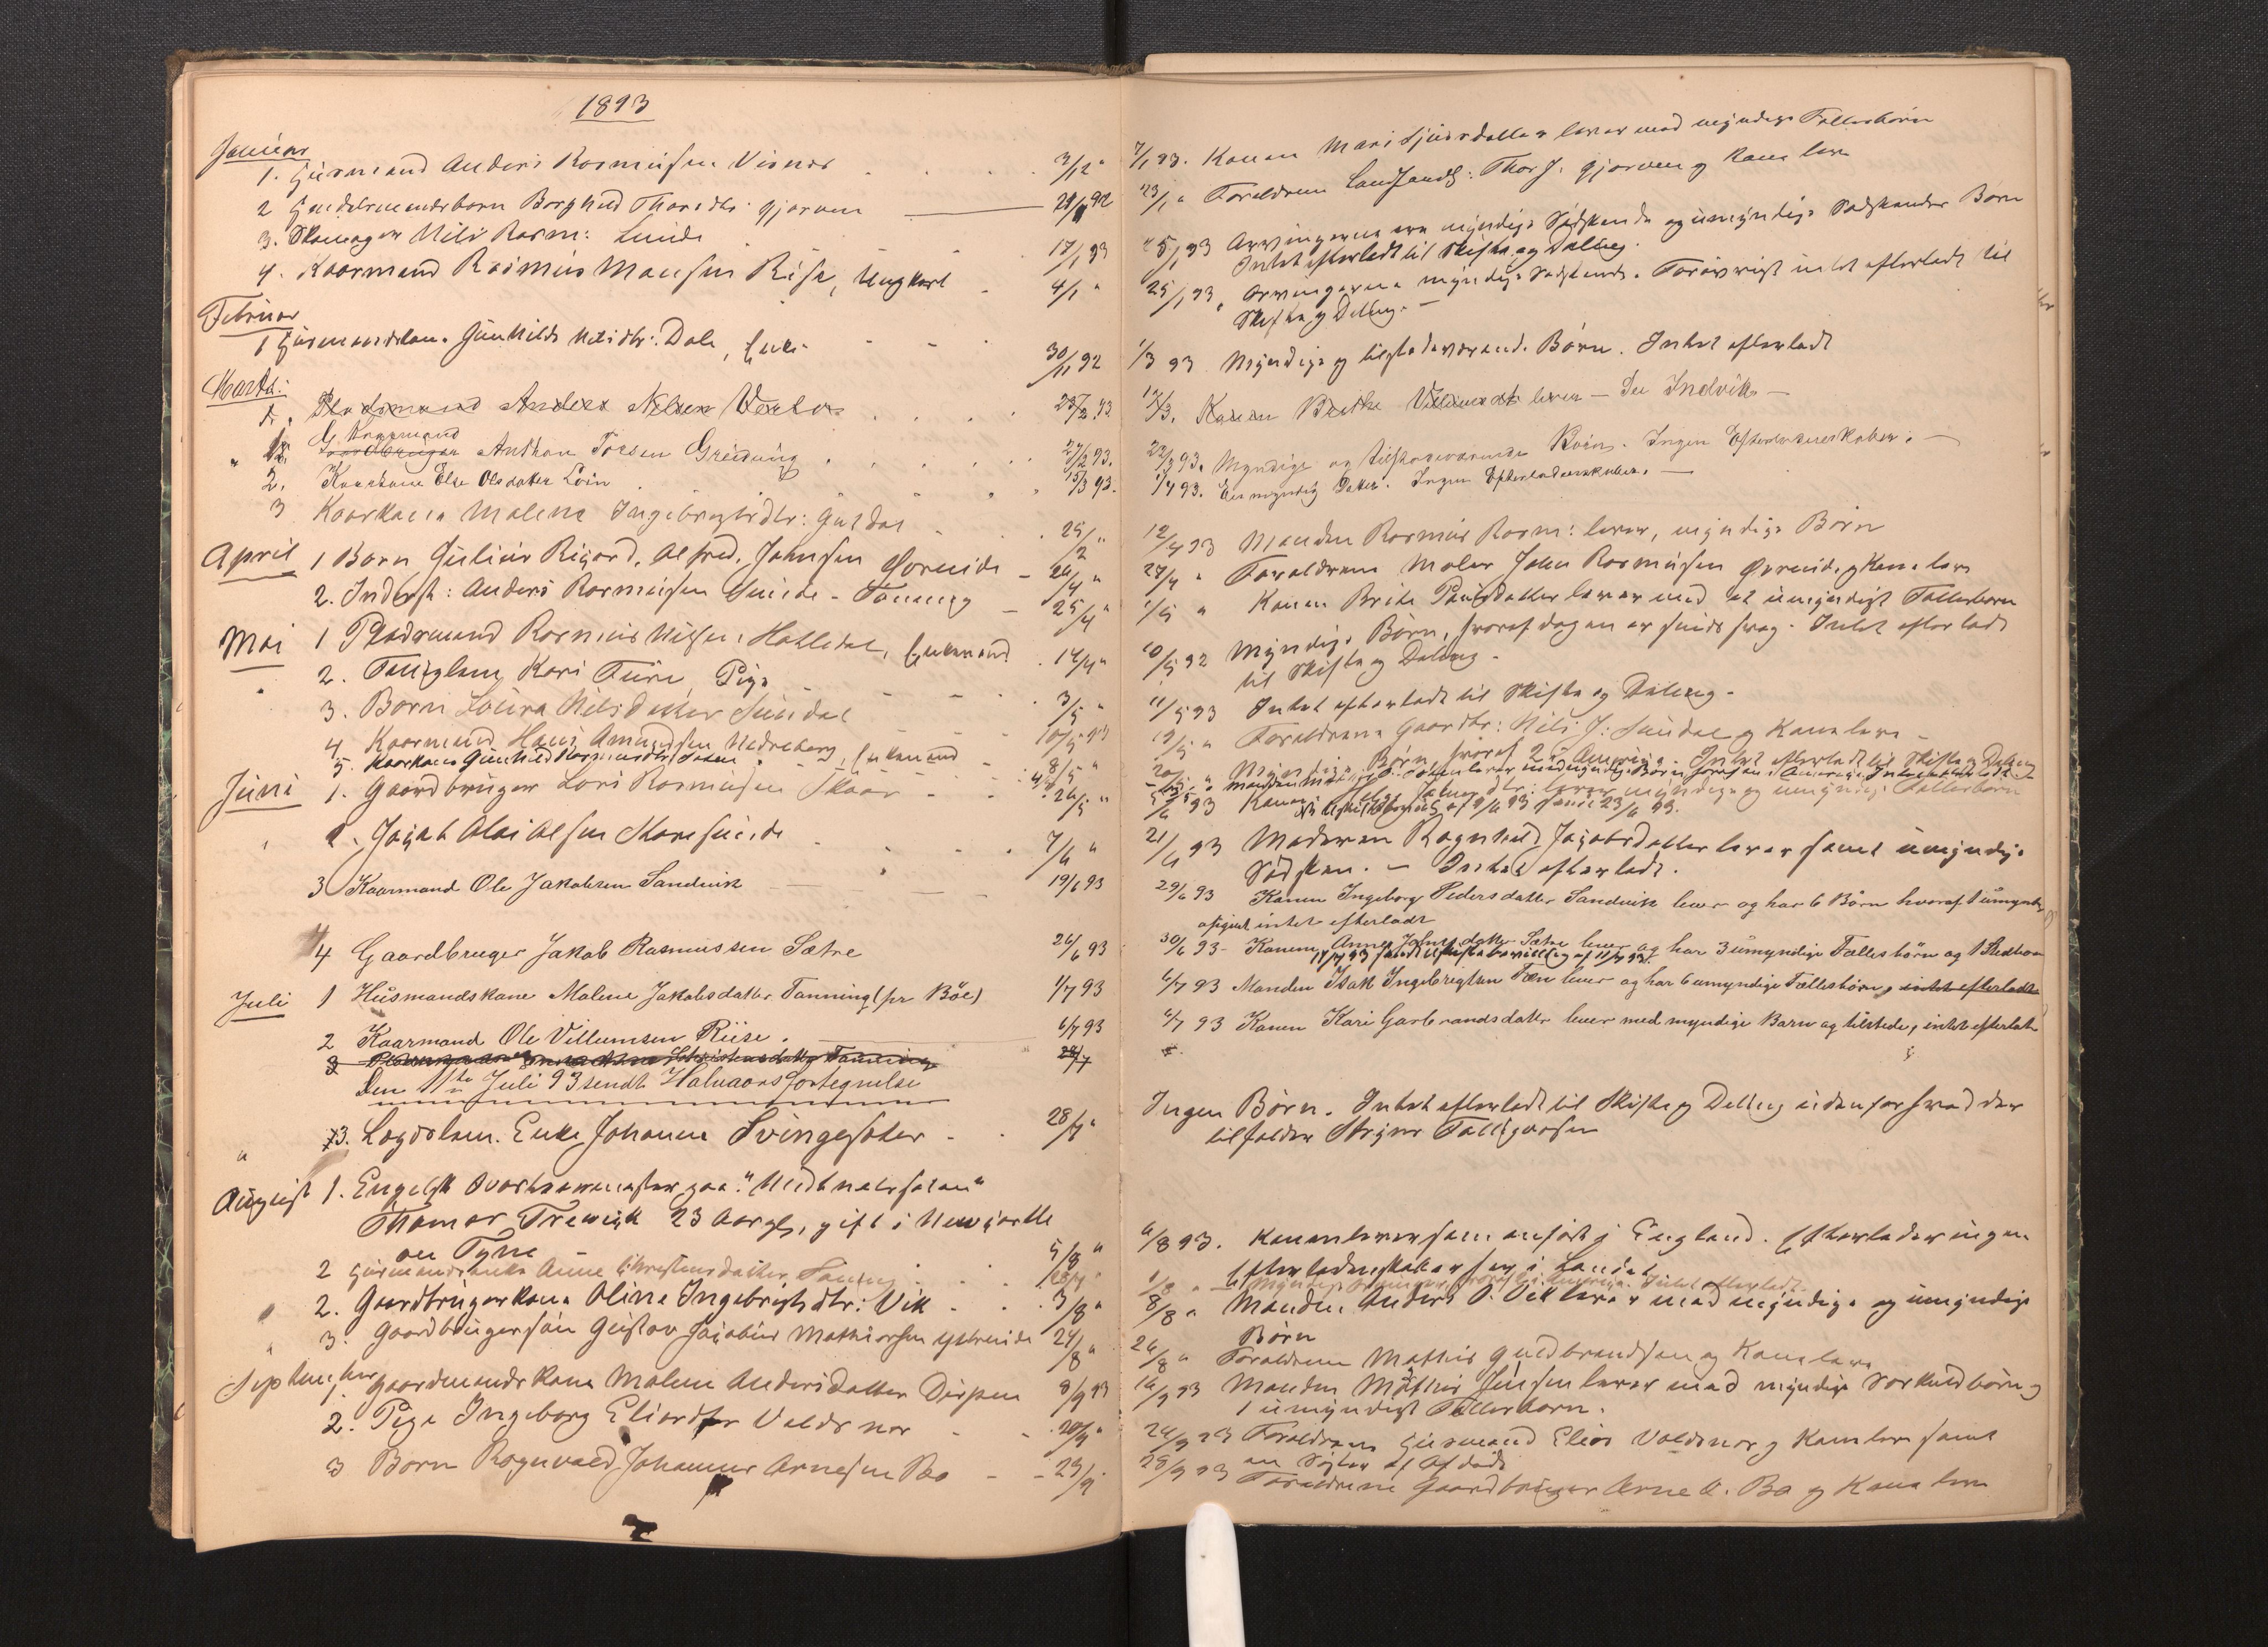 1893
Januar
1. Husmand Anders Rasmussen Visnes 3/12 "
2 Handelsmandsbarn Borghild Thorsdtr. Gjørven 29/ 92
3. Skomager Nils Rasm: Sunde 17/1 93
4. Kaarmand Rasmus Monsen Rise, Ungkarl 4/1 "
Februar
1 Husmandskone Gunhilde Nilsdtr. Dale, Enke 30/11 92
Marts:
1. Pladsmand Anders Nelsen 23/2 93
" 1. Gaardbruger Kaarmand Anthon Greidung 27/2 93.
2. Kaarkone Else Olsdatter Loin 15/3 93.
3 Kaarkone Malene Ingebrigtsdtr: Guldal 25/2 "
April 1 Barn Julius Rikard. Alfred. Johnsen Øvreeide 24/4 "
2. Inderst: Anders Rasmussen Sunde - Tonning 25/4 "
Mai 1 Pladsmand Rasmus Nilsen Hallidal, Enkemand 14/4 "
2. Fattiglem Kari Fure, Pige 3/5 "
3. Barn Loura Nilsdatter Sundal 10/5 93
4. Kaarmand Hans Amundsen Nedreberg, Enkemand 8/5 "
5. Kaarkone Gunhild Rasmusdtr
Juni 1. Gaardbruger Lars Rasmussen Skaar 26/5 "
2. Jakob Olai Olsen Moresunde 7/6 "
3 Kaarmand Ole Jakobsen Sandvik 19/6 93
4 Gaardbruger Jakob Rasmussen Sætre 26/6 93
Juli 1 Husmandskone Malene Jakobsdatter Tanning (pr Böe) 1/7 93
2 Kaarmand Ole Villumsen Riise. 6/7 93
3
Den 11te Juli 93 sendt Halvaarsfortegnelse
" 3. Lægdslem. Enke Johanne Svingesæter 28/7 "
August 1. Engelsk paa "Midtnatssolen"
Thomas Trewick 23 Aar gl, gift i Newcastle
on Tyne 5/8 "
2 Husmandsenke Anne Christensdatter Tonning 28/7 "
2. Gaardbrugerkone Oline Ingebrigtsdtr: Vik 3/8 "
" 3. Gaardbrugersøn Gustav Jakobus Mathiassen Ytreeide 24/8 "
September 1 Gaardmandskone Malene Andersdatter Dispen 8/9 93
2. Pige Ingeborg Eliasdtr Voldsnes 20/9 "
3 Barn Ragnvald Johannes Arnesen Bø 23/9 "
7/1 93. Konen Mari Sjursdatter lever med myndige Fællesbørn
23/1 " Forældrene Landhandl: Thor J. Gjørven og Kone lever
25/1 93 Arvingerne ere myndige Sødskende og umyndige Sødskendes Børn
Intet efterladt til Skifte og Deling.
25/1 93 Arvingerne myndige Sødskende. Forøvrigt intet efterladt til
Skifte og Deling.
1/3 93 Myndige og tilstedeværende Børn. Intet efterladt
12/3. Konen Brithe lever - Se Indvik -
22/3 93. Myndige og tilstedeværende Børn. Ingen Efterladenskaber. -
1/4 93. En myndig Datter. Ingen Efterladenskaber. -
12/4 93 Manden Rasmus Rasm: lever, myndige Børn
27/4 " Forældrene Maler John Rasmussen Øvreeide og Kone lever
1/5 " Konen Brite Paulsdatter lever med et umyndigt Fællesbarn
10/5 92 Myndige Børn, hvoraf dog en er sindssvag. Intet efterladt
til Skifte og Deling -
11/5 93 Intet efterladt til Skifte og Deling -
19/5 " Forældrene Gaardbr: Nils J: Sundal og Kone lever -
20/5 " Myndige Børn, hvoraf 2 i Amerika. Intet efterladt til Skifte og Deling
5/6 93 Konen lever myndige og umyndige Fællesbørn
af 9/6 93 23/6 93.
21/6 93 Moderen Ragnhild Jakobsdatter lever samt umyndige
Sødsken. - Intet efterladt.
29/6 93 Konen Ingeborg Pedersdatter Sandvik lever og har 6 Börn hvoraf 1 umyndig
intet efterladt
30/6 93 - Konen Anne Johnsdatter Sætre lever og har 3 umyndige Fællesbörn og 1 Stedbarn
11/7 93
6/7 93 Manden Isak Ingebrigtsen Tæn lever og har 6 umyndige Fællesbörn, intet efterladt
6/7 93 Konen Kari Garbrandsdatter lever med myndige Barn og tilstede, intet efterladt
Ingen Børn. Intet efterladt til Skifte og Deling udenfor hvad der
tilfalder Stryns Fattigvæsen
6/8 93. Konen lever i England. Efterlader ingen
Efterladenskaber her i Landet
1/8 " Myndige Arvinger, hvoraf i Amerika. Intet efterladt
8/8 " Manden Anders O. Vik lever med myndige og umyndige
Børn
26/8 " Forældrene Mathis Guldbrandsen og Kone lever
16/9 93 Manden Mathis Jensen lever med myndige Særkuldbørn og
1 umyndigt Fællesbarn.
24/9 93 Forældrene Husmand Elias Voldsnes og Kone lever samt
en Søster af Afdøde
28/9 93 Forældrene Gaardbruger Arne A. Bø og Kone lever